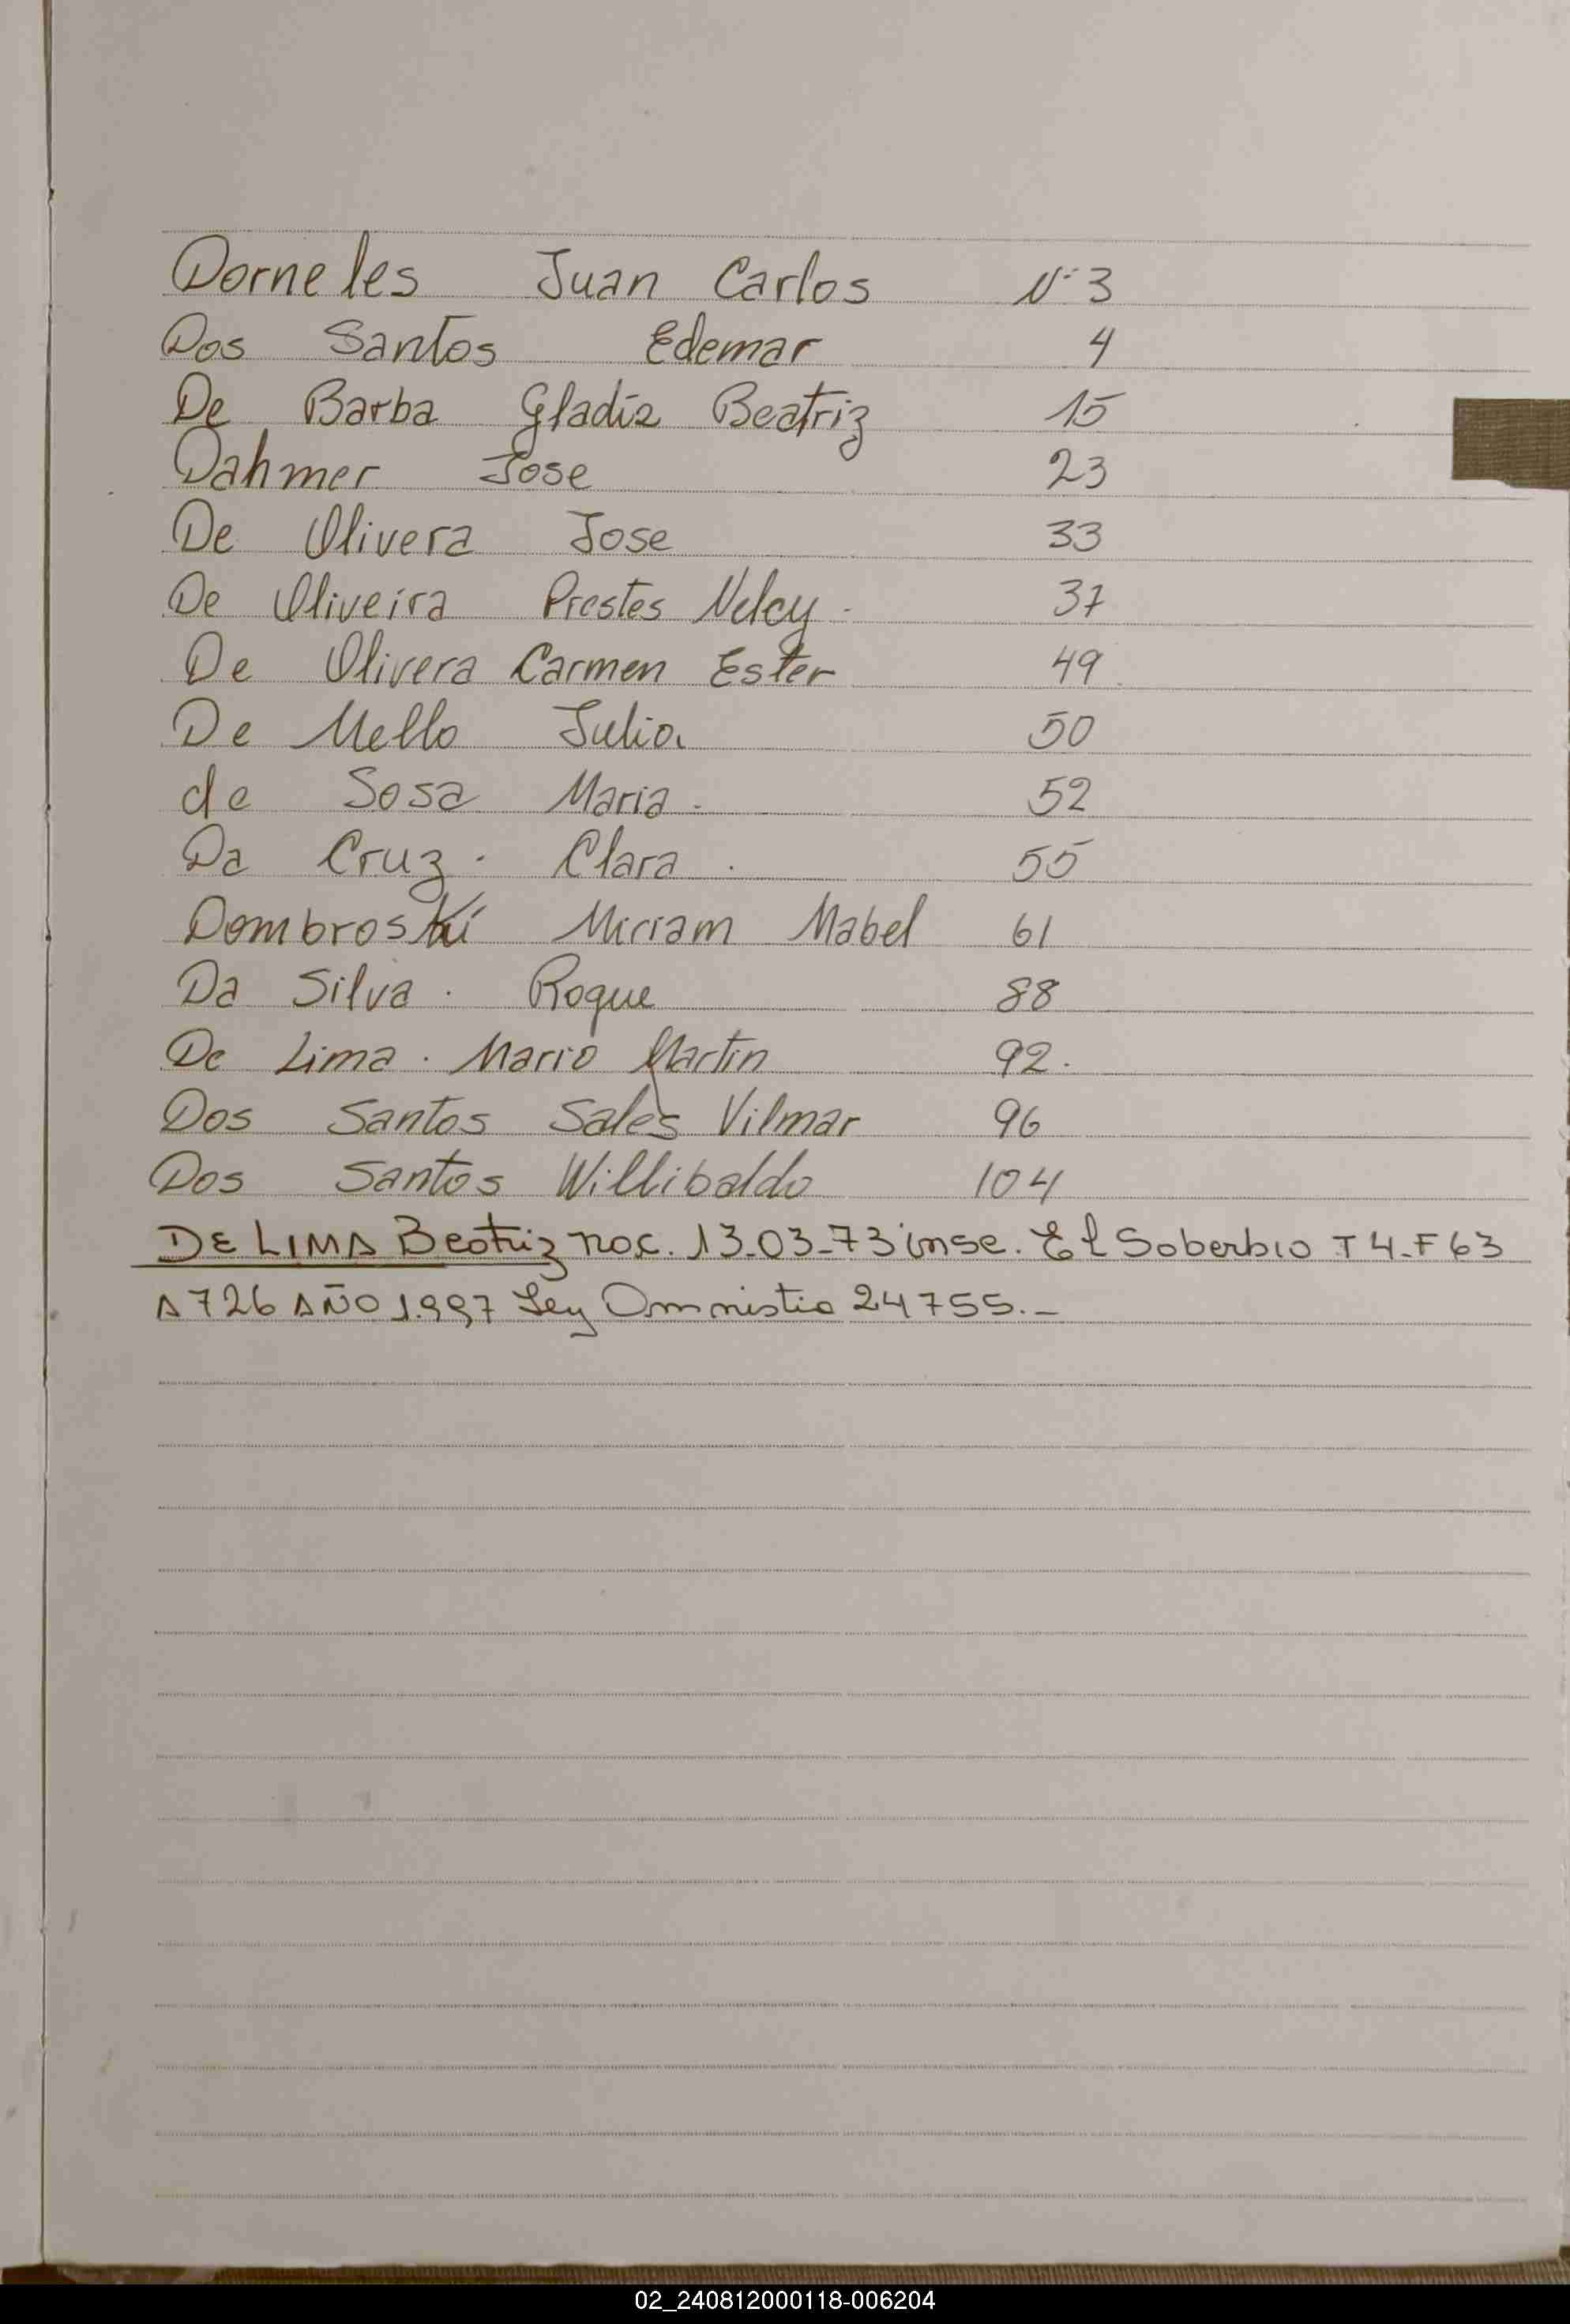 Dorneles Juan Carlos Nº 3
Dos Santos Edemar 4
De Barba Gladiz Beatriz 15
Dahmer Jose 23
De Olivera Jose 33
De Oliveira Prestes Nelcy. 37
De Olivera Carmen Ester 49.
De Mello Julia 50
de Sosa Maria. 52
Da Cruz. Clara. 55
Dombroski Miriam Mabel 61
Da Silva. Roque 88
De Lima. Mario Martin 92.
Dos Santos Sales Vilmar 96
Dos Santos Willibaldo 104
DE LIMA Beatriz nac. 13-03-73 insc. El Soberbio T 4-F 63
A 726 AÑO 1.997 Ley Amnistia 24755.-
02_240812000118-006204